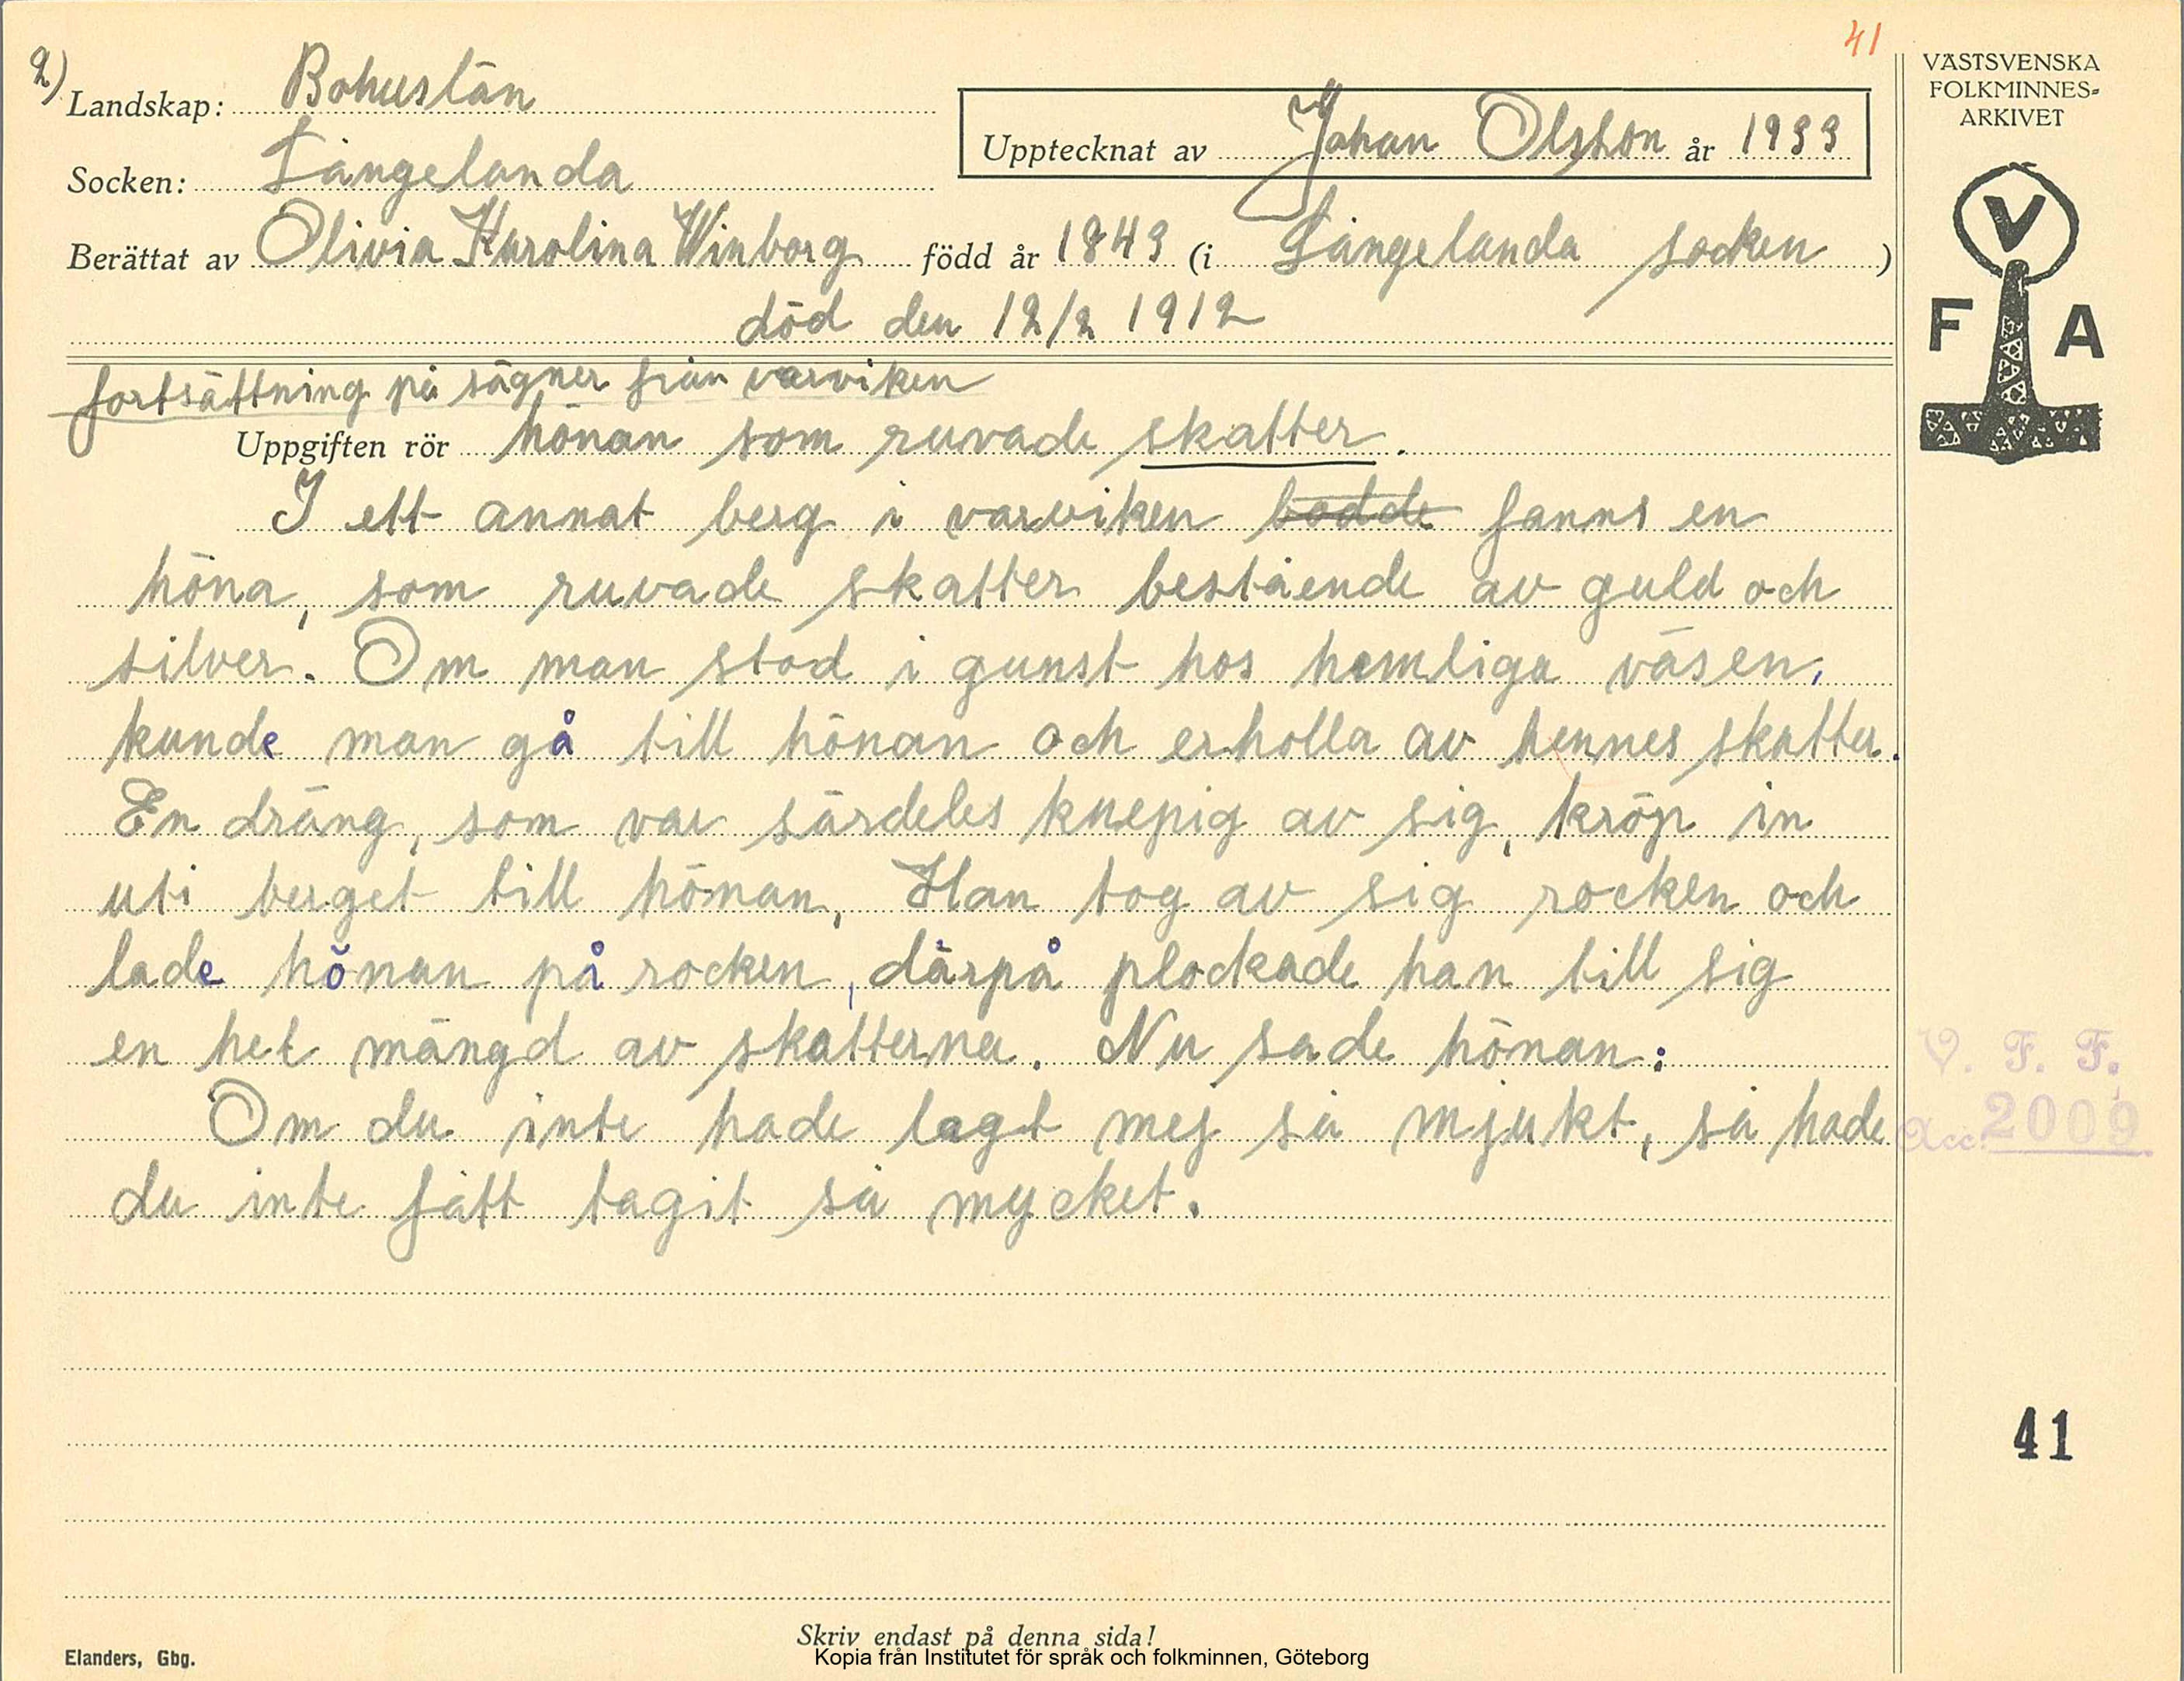 41
2)
Landskap: Bohuslän
Socken: Långelanda
Upptecknat av Johan Olsson år 1933
Berättat av Olivia Karolina Winborg född år 1843 (i Långelanda socken)
död den 12/2 1912
VÄSTSVENSKA
FOLKMINNES-
ARKIVET
V
F A
fortsättning på sägner från varviken
Uppgiften rör hönan som ruvade skatter.
I ett annat berg i varviken bodde fanns en
höna, som ruvade skatter bestående av guld och
silver. Om man stod i gunst hos hemliga väsen,
kunde man gå till hönan och erholla av hennes skatter.
En dräng, som var särdeles knepig av sig, kröp in
uti berget till hönan, Han tog av sig rocken och
lade hönan på rocken, därpå plockade han till sig
en hel mängd av skatterna. Nu sade hönan:
Om du inte hade lagt mej så mjukt, så hade
du inte fått tagit så mycket.
V. F. F.
Acc. 2009
41
Skriv endast på denna sida!
Elanders, Gbg.
Kopia från Institutet för språk och folkminnen, Göteborg